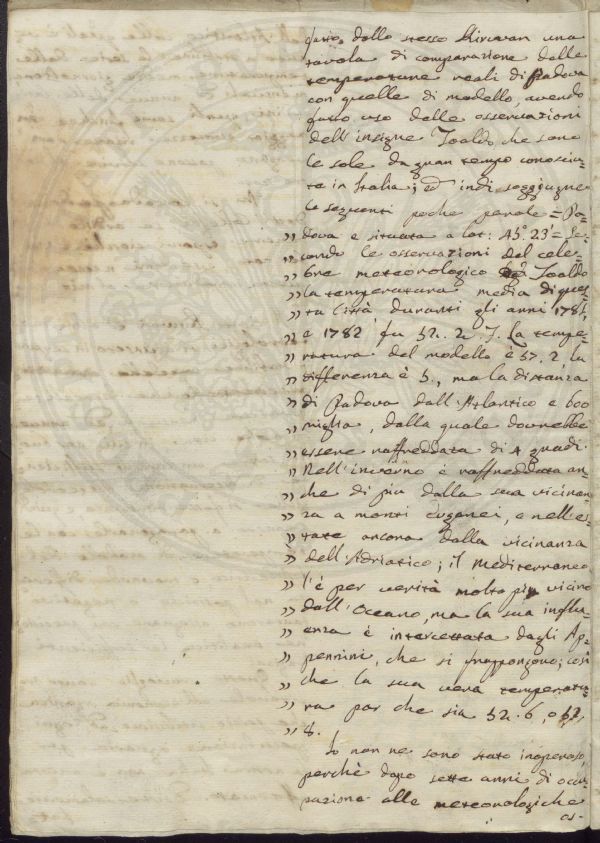 fatto dallo stesso Kirwan una
tavola di comparazione delle
temperature reali di Padova
con quelle di modello, avendo
fatto uso delle osservazioni
dell'insigne Toaldo che sono
le sole da gran tempo conosciu-
te in Italia; ed indi soggiugne
le seguenti poche parole = Pa-
„ dova e situata a lat: 45° 23' = Se-
„ condo le osservazioni del cele-
„ bre meteorologico Toaldo
„ la temperatura media di ques-
„ ta Città duranti gli anni 1781,
„ e 1782 fu 52. 2. La tempe-
„ ratura del modello è 57. 2 la
„ differenza è 5., ma la distanza
„ di Padova dall'Atlantico e 600
„ miglia, dalla quale dovrebbe
„ essere raffreddata di 4 gradi.
„ Nell'inverno è raffreddata an-
„ che di piu dalla sua vicinan-
„ za a monti Euganei, e nell'es-
„ tate ancora dalla vicinanza
„ dell'Adriatico; il Mediterraneo
„ l'è per verità molto più vicino
„ dall'Oceano, ma la sua influ-
„ enza è intercettata dagli Ap-
„ pennini, che si frappongono; così
„ che la sua vera temperatu-
„ ra par che sia 52. 6, o 52,
„ 8.
Io non ne sono stato inoperoso,
perchè dopo sette anni di occu-
pazione alle meteorologiche
os-